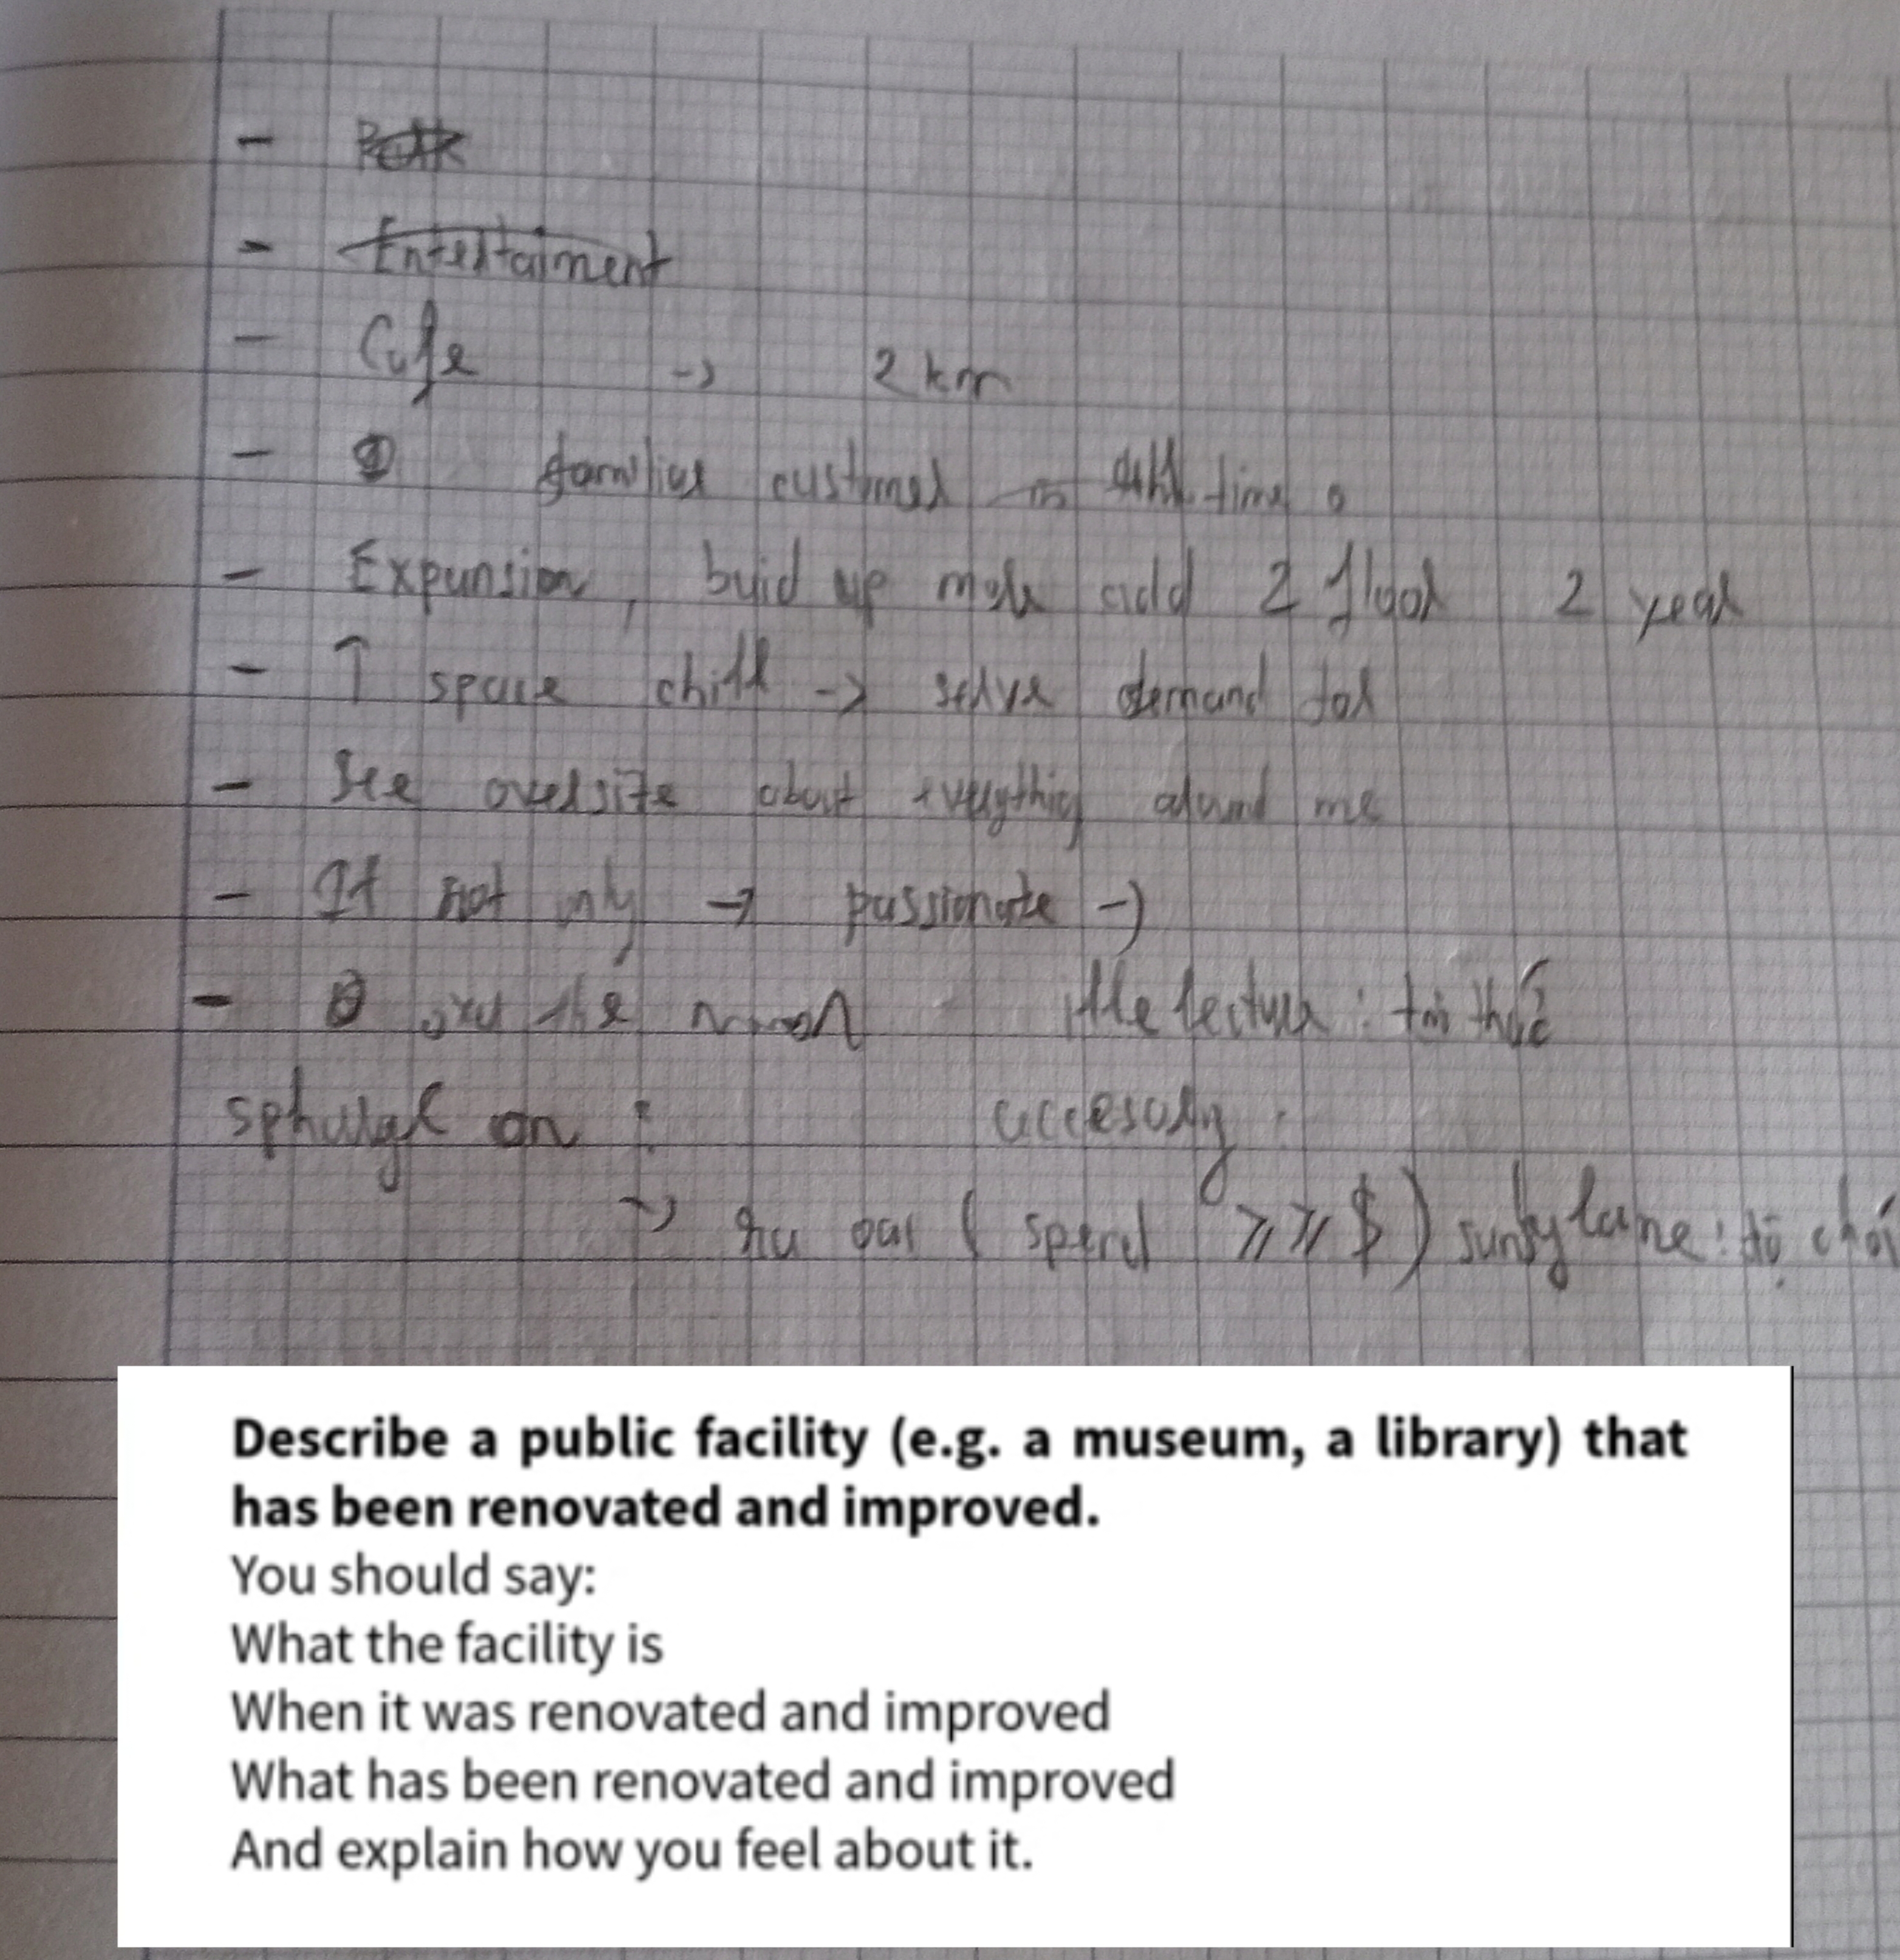 -
- Entertaiment
- Cafe -> 2 km
- familiar customer in time
- Expansion, buid up more add 2 floor 2 year
- ↑ space chill -> solve demand for
- See oversite about everything around me
- It not only -> passionate ->
- over the moon : trí thức
sphurge on : accesory :
-> (spend >> >> $) : đồ chơi
Describe a public facility (e.g. a museum, a library) that
has been renovated and improved.
You should say:
What the facility is
When it was renovated and improved
What has been renovated and improved
And explain how you feel about it.